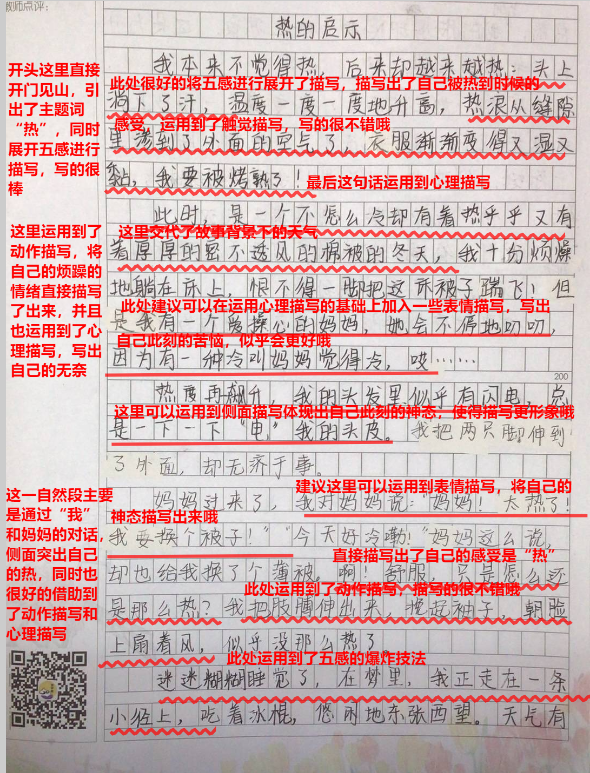 教师点评：
热的启示
我本来不觉得热，后来却越来越热：头上
开头这里直接
开门见山，引
出了主题词
“热”，同时
展开五感进行
描写，写的很
棒
此处很好的将五感进行展开了描写，描写出了自己被热到时候的
淌下了汗，温度一度一度地升高，热浪从缝隙
感受，运用到了触觉描写，写的很不错哦
里渗到了外面的空气了，衣服渐渐变得又湿又
黏，我要被烤熟了！
最后这句话运用到心理描写
此时，是一个不怎么冷却有着热乎乎又有
这里交代了故事背景下的天气
着厚厚的密不透风的棉被的冬天，我十分烦燥
这里运用到了
动作描写，将
自己的烦躁的
情绪直接描写
了出来，并且
也运用到了心
理描写，写出
自己的无奈
地躺在床上，恨不得一脚把这床被子踹飞！但
此处建议可以在运用心理描写的基础上加入一些表情描写，写出
是我有一个爱操心的妈妈，她会不停地叨叨，
自己此刻的苦恼，似乎会更好哦
因为有一种冷叫妈妈觉得冷，哎……
200
热度再飙升，我的头发里似乎有闪电，总
这里可以运用到侧面描写体现出自己此刻的神态；使得描写更形象哦
是一下一下“电”我的头皮。我把两只脚伸到
了外面，却无济于事。
这一自然段主要
是通过“我”
和妈妈的对话，
侧面突出自己
的热，同时也
很好的借助到
了动作描写和
心理描写
建议这里可以运用到表情描写，将自己的
妈妈过来了，我对妈妈说：“妈妈！太热了！
神态描写出来哦
我要换个被子！”“今天好冷嘞！”妈妈这么说，
直接描写出了自己的感受是“热”
却也给我换了个薄被。啊！舒服，只是怎么还
此处运用到了动作描写，描写的很不错哦
是那么热？我把胳膊伸出来，挽起袖子，朝脸
上扇着风，似乎没那么热了。
此处运用到了五感的爆炸技法
迷迷糊糊睡觉了，在梦里，我正走在一条
小径上，吃着冰棍，悠闲地东张西望。天气有